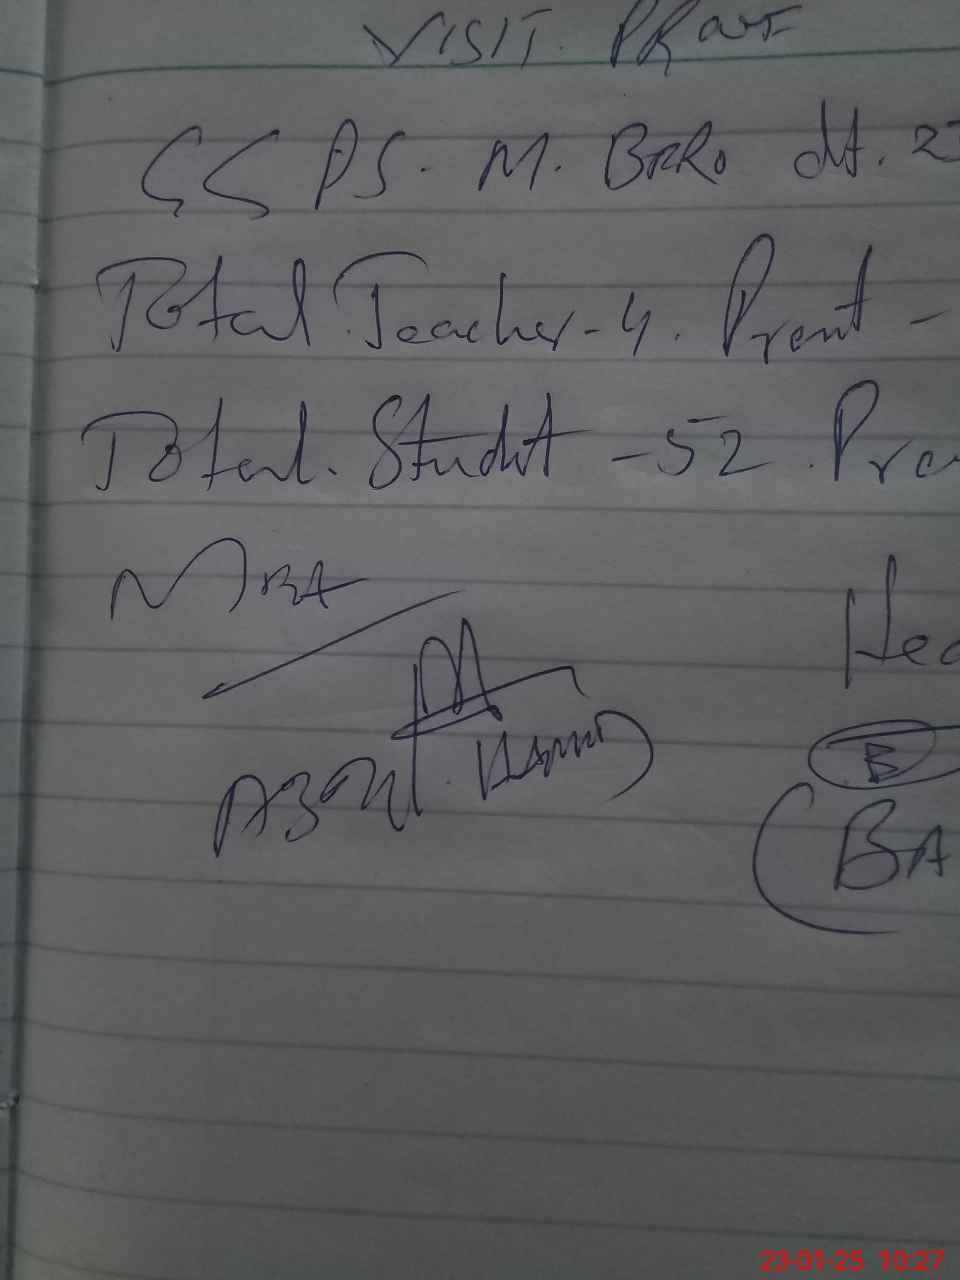 VISIT. PROOF
GGPS. M. BRRO dt. 2
Total Teacher - 4. Presnt -
Total. Studnt - 52. Pre
MEA
Hea
B
Hamid
(BA
23-01-25 10:27